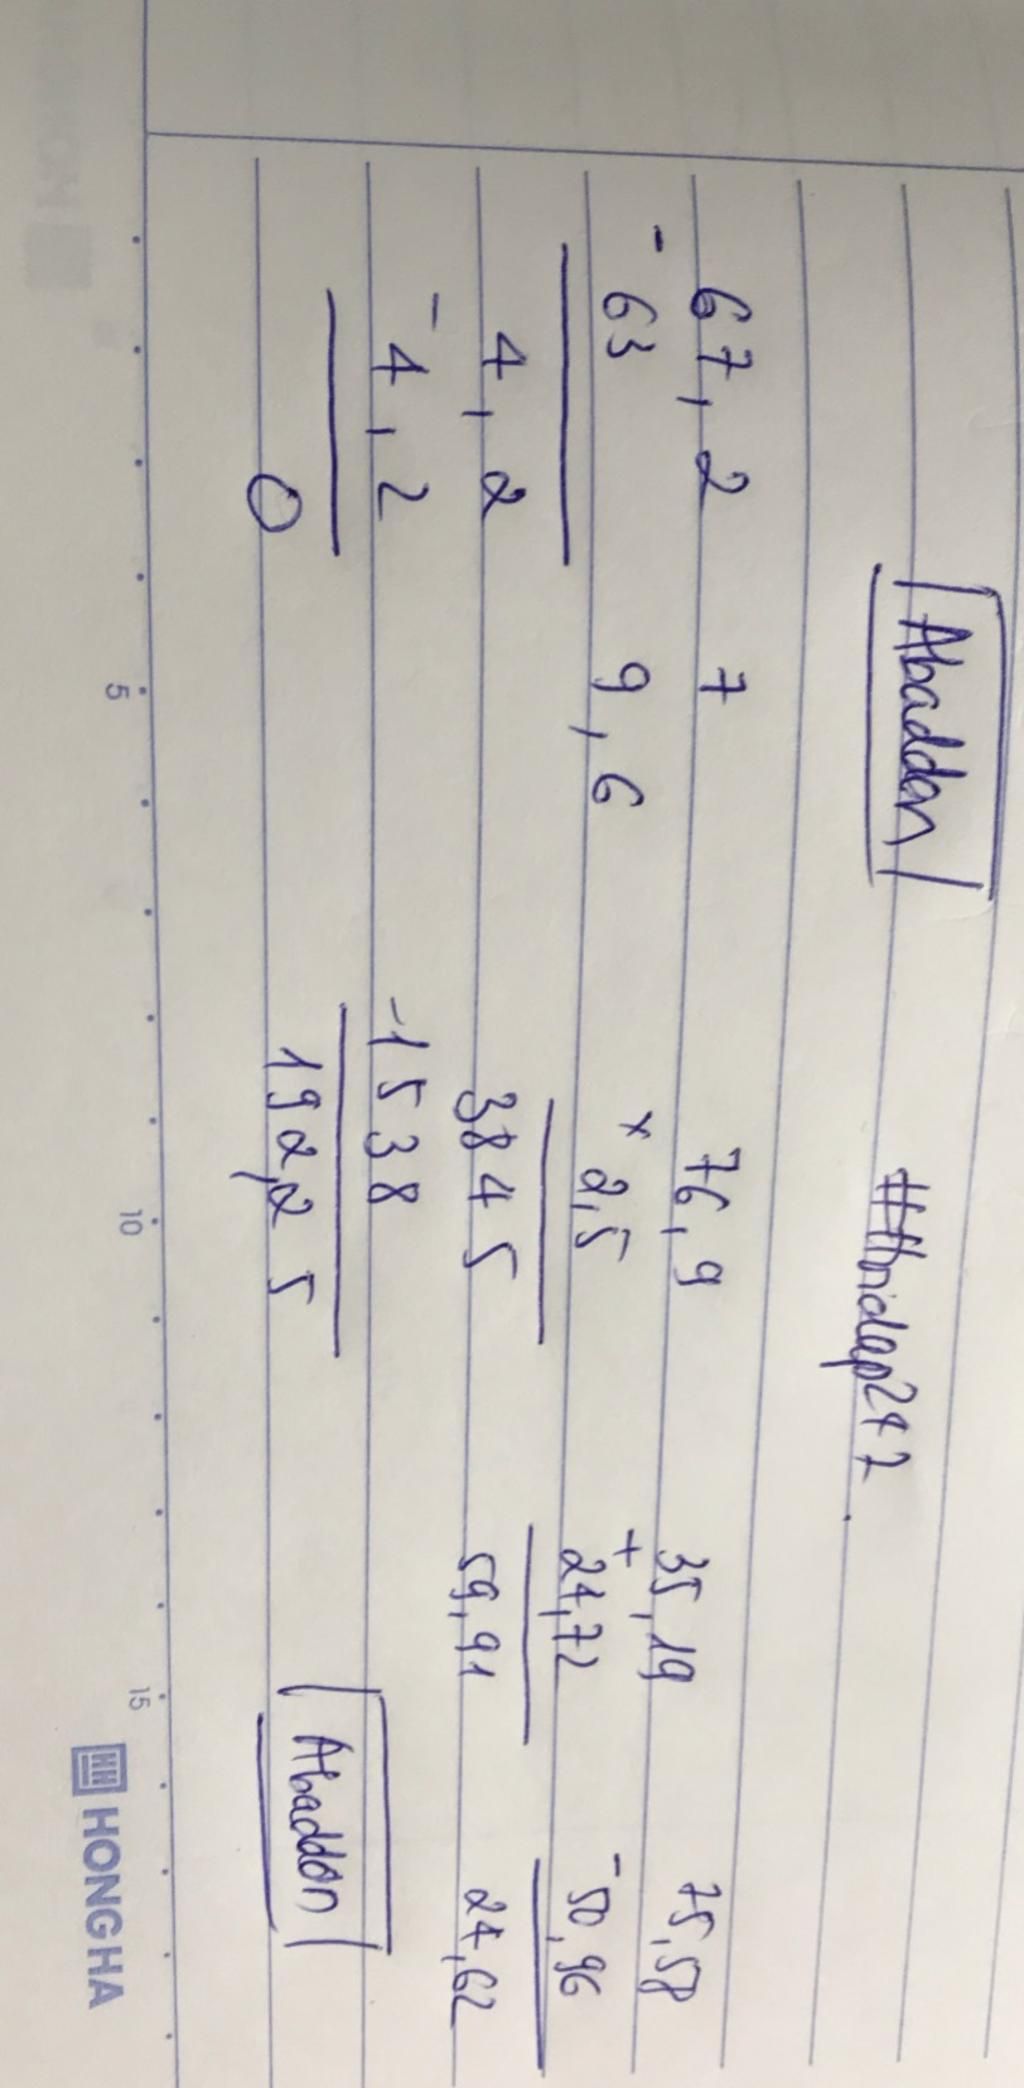 Abaddon #thoidap247
67,2 7 76,9 35,19 75,58
- 63 9,6 × 2,5 + 24,72 - 50,96
4,2 3845 59,91 24,62
- 4,2 -1538
0 192,25 Abaddon
5 10 15
HH HONG HA